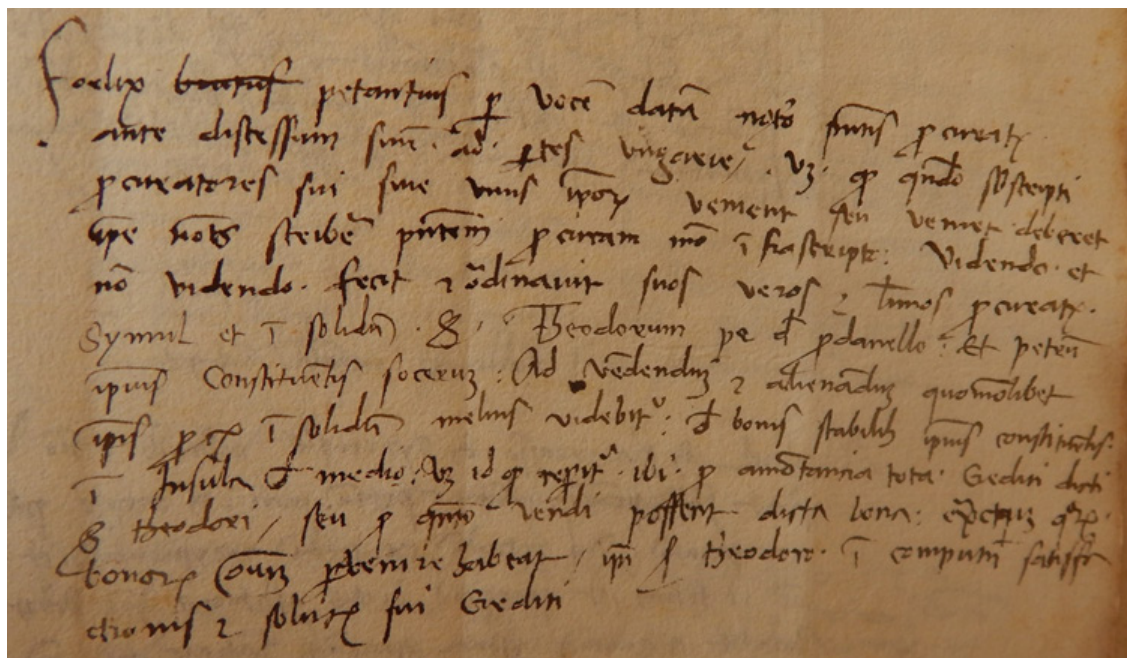 Foelix petantius p vocē datā notō
ante discessum suū ad ptes vngarie vz qp qndo sbscripti
procuratores sui siue vnus ipoꝝ venient seu veniet deberet
ipe notō scribē pntem procuram mō īfrascripto: Videndo et
nō videndo fecit ⁊ ordinauit suos veros ⁊ ltimos procuratꝝ
Symul et ī solidū S. Theodorum pe d pdanello Et petrū
ipius Constituētis socerum: Ad vēdendū ⁊ alienādum quomolibet
ipis ī solidū melius videbitr d bonis stabilib ipius constituētis
ī Insula d medio: vz id qp repitr ibi p amōtancia tota Crediti dicti
S theodori / seu p qnto vendi possent dicta bona:
bonoꝝ puenire habeat / ipi S theodoro ī computū satisfa
ctionis ⁊ solutꝝ sui Crediti